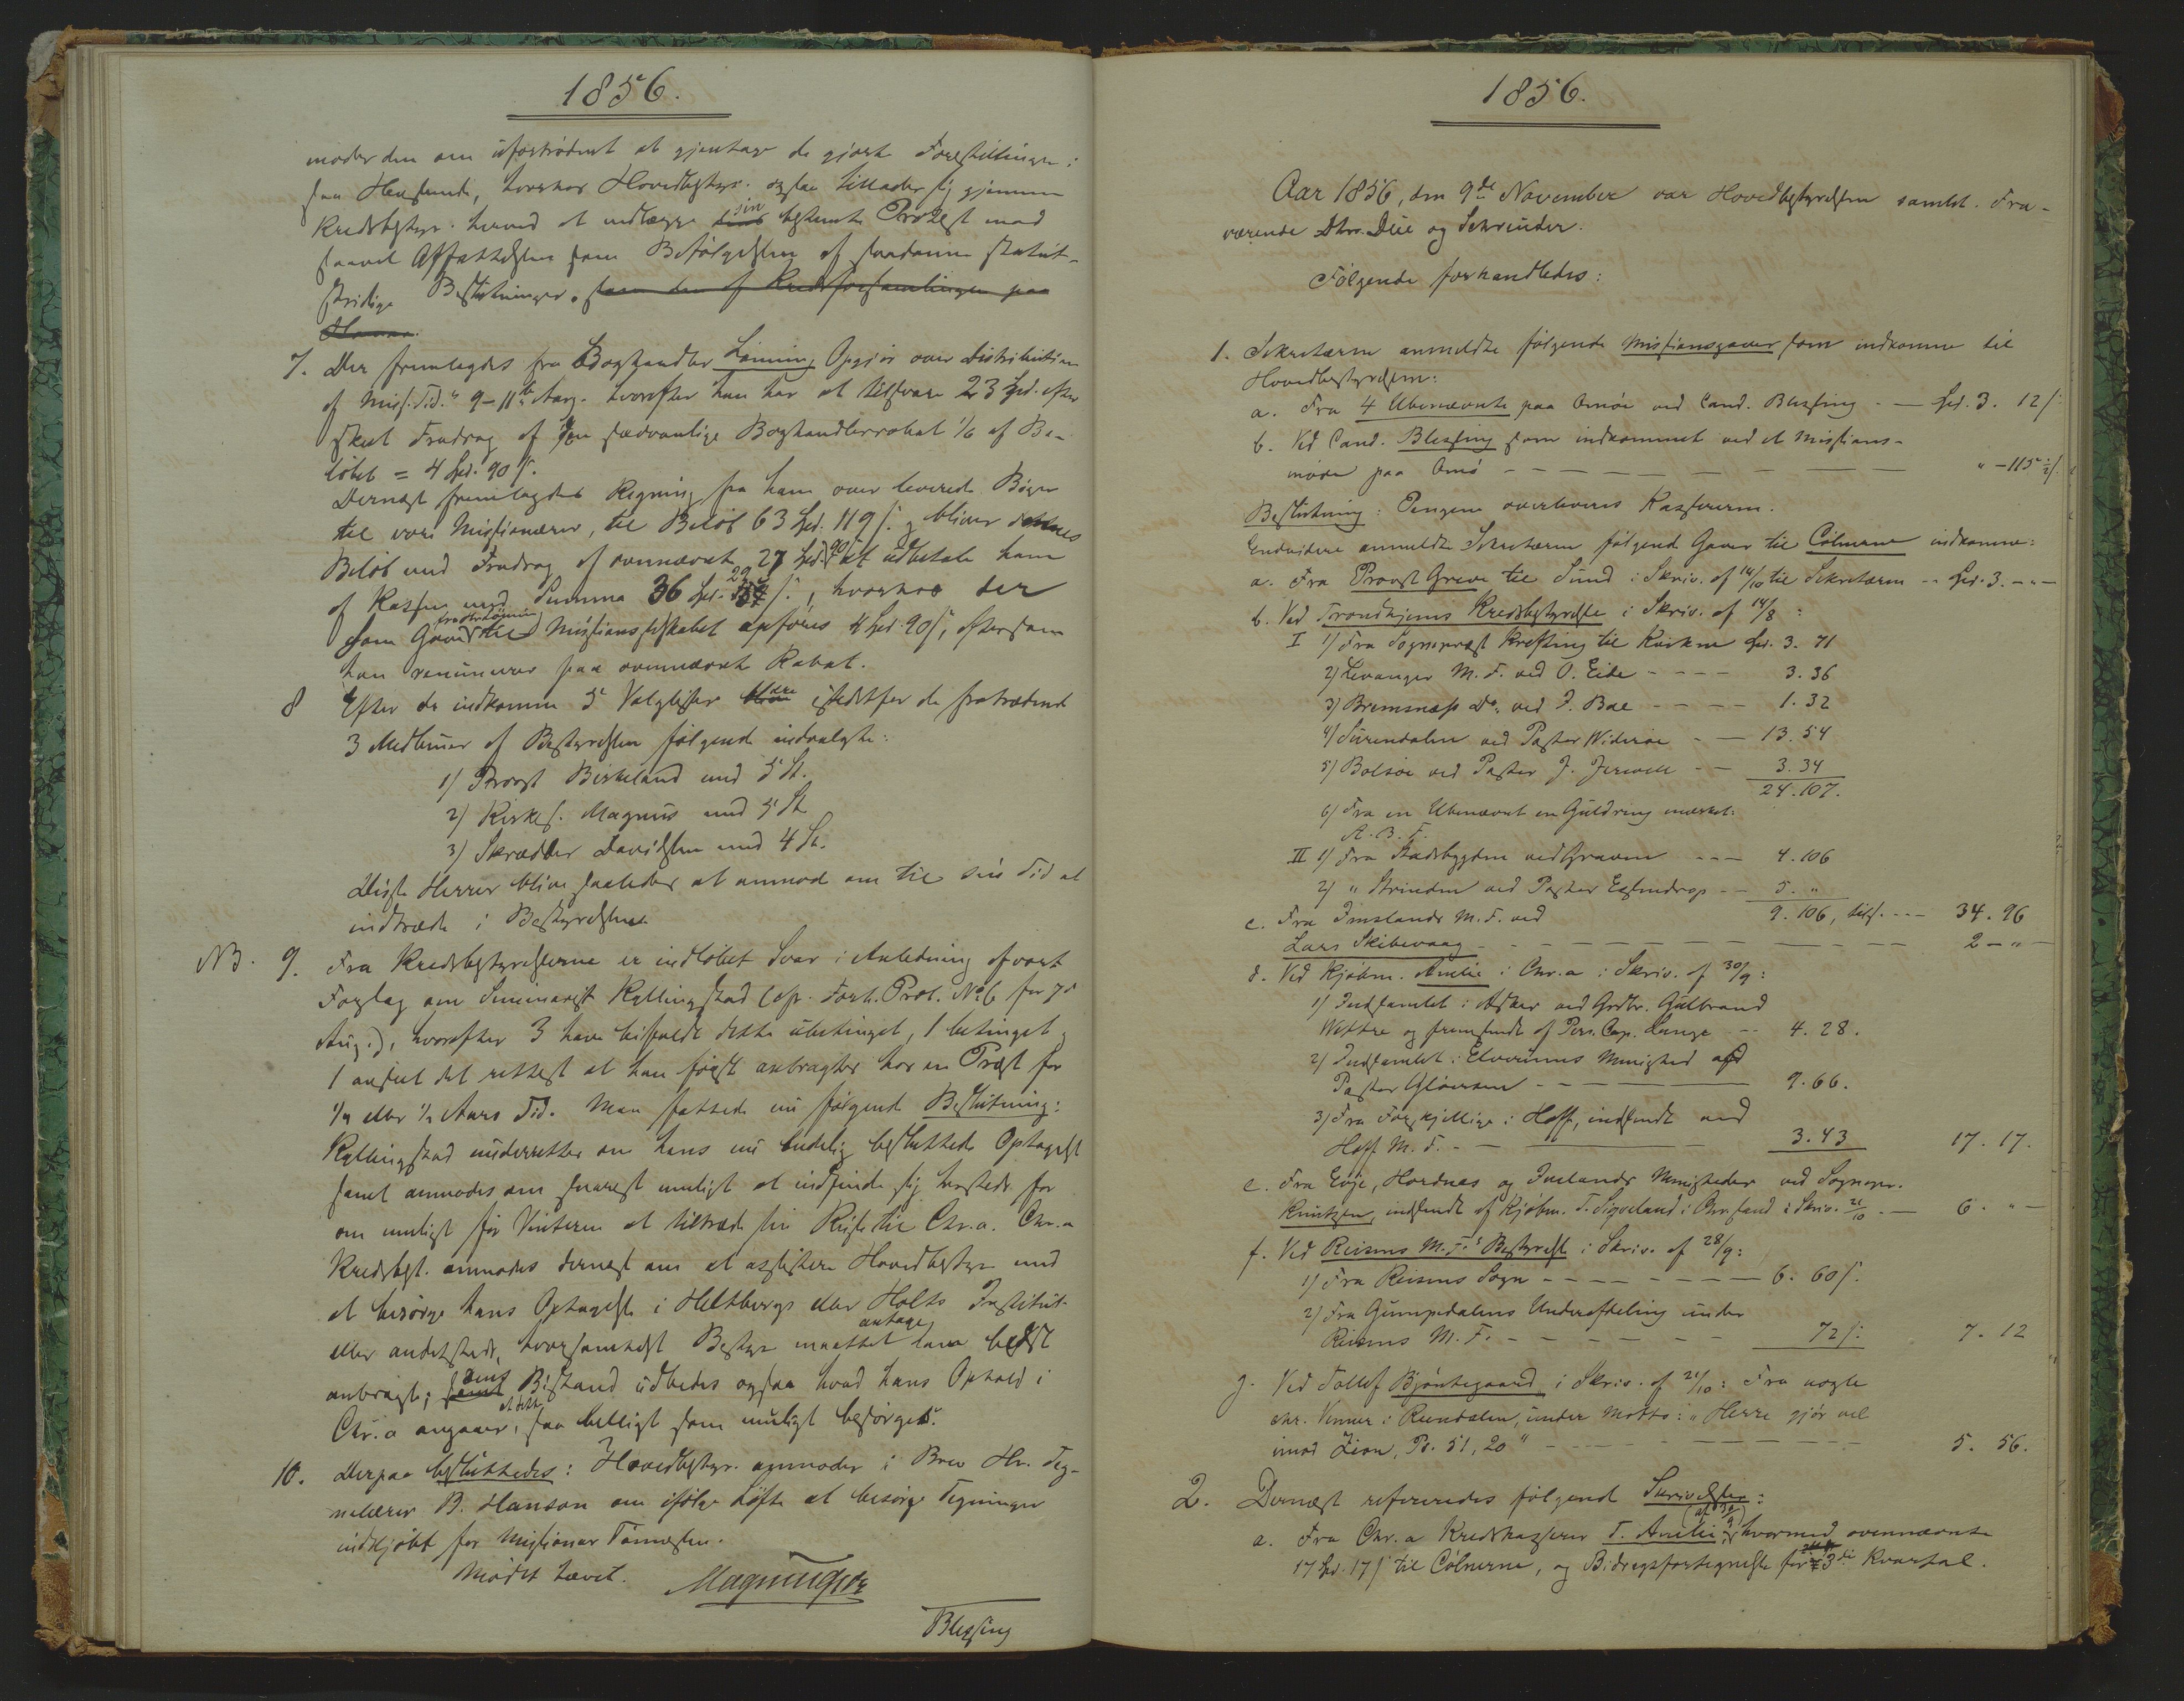 1856.
moder den om ufortrødent at gjentage de gjorte Forestillinger i
saa Henseende, hvorhos Hovedbestyr. ogsaa tillader sig gjennem
Kredsbestyr. herved at nedlægge sin bestemte Protest mod
saavel Affattelsen som Befølgelsen af saadanne statut-
stridige Beslutninger, som den af Kredsforsamlingen paa
7. Der fremlagdes fra Boghandler Lønning Opgjør over Distributionen
af Miss. Tid.s 9-11te Aarg. hvorefter han har at tilsvare 23 Spd. efter
skeet Fradrag af den sædvanlige Boghandlerrabat 1/6 af Be-
løbet = 4 Spd. 90 s.
Dernæst fremlagdes Regning fra ham over leverede Bøger
til vore Missionærer, til Beløb 63 Spd. 119 s. og bliver dennes
Beløb med Fradrag af ovennævnte 27 Spd. 90 at udbetale ham
af Kassen med Summa 36 Spd. 29 s., hvorhos der
som Gave fra Hr. Lønning til Missionsselskabet opføres 4 Spd. 90 s, eftersom
han renuncerer paa ovennævnte Rabat.
8 Efter de indkomne 5 Valglister ere istedetfor de fratrædende
3 Medlemer af Bestyrelsen følgende indvalgte:
1) Provst Birkeland med 5 St.
2) Kirkes. Magnus med 5 St
3) Skrædder Davidsen med 4 St.
Disse Herrer blive saaledes at anmode om til sin Tid at
indtræde i Bestyrelsen.
NB. 9. Fra Kredsbestyrelserne er indløbet Svar i Anledning af vort
Forslag om Seminarist Kyllingstad (cfr. Forh. Prot. No 6 for 7de
Aug.), hvorefter 3 have bifaldt dette ubetinget, 1 betinget og
1 anseet det rettest at han først anbragtes hos en Præst for
1/4 eller 1/2 Aars Tid. Man fattede nu følgende Beslutning:
Kyllingstad underrettes om hans nu endelig besluttede Optagelse
samt anmodes om snarest muligt at indfinde sig hersteds for
om muligt før Vinteren at tiltræde sin Reise til Chr.a. Chr.a
Kredsbest. anmodes dernæst om at assistere Hovedbestyr. med
at besørge hans Optagelse i Heltbergs eller Holts Institut
eller andetsteds, hvorsomhelst Bestyr. maatte antage ham bedst
anbragt; dens Bistand udbedes ogsaa hvad hans Ophold i
Chr.a angaaer, at dette saa billigt som muligt besørges.
10. Derpaa besluttedes: Hovedbestyr. anmoder i Brev Hr. Teg-
nelærer B. Hanson om ifølge Løfte at besørge Tegninger
indkjøbt for Missionær Tønnesen.
Mødet hævet. Magnus
Blessing
1856.
Aar 1856, den 9de November var Hovedbestyrelsen samlet. Fra-
værende DHrr. Due og Schreuder.
Følgende forhandledes:
1. Sekretæren anmeldte følgende Missionsgaver som indkomne til
Hovedbestyrelsen:
a. Fra 4 Ubenævnte paa Omøe ved Cand. Blessing - — Spd. 3. 12 s.
b. Ved Cand. Blessing som indkommet ved et Missions-
møde paa Omø - — — — — — — — " - 115 1/2 s.
Beslutning: Pengene overleveres Kassereren.
Endvidere anmeldte Sekretæren følgende Gaver til Cølnerne indkomne:
a. Fra Provst Greve til Sund i Skriv. af 14/10 til Sekretæren -- Spd. 3. - " -
b. Ved Trondhjems Kredsbestyrelse i Skriv. af 14/8:
I 1) Fra Sognepræst Krefting til Kvikne Spd. 3. 71
2) Levanger M. F. ved O. Eide - - - - 3. 36
3) Bremsnæss Do. ved J. Boe - - - - 1. 32
4) Surendalen ved Pastor Widerøe - — 13. 54
5) Bolsøe ved Pastor J. Jervell -- 3. 34
24. 107.
6) Fra en Ubenævnt en Guldring mærket:
A. B. F.
II 1) Fra Stadsbygden ved Graven - - - 4. 106
2) " Strinden ved Pastor Essendrop -- 5. "
9. 106, tils. --- 34. 96
c. Fra Imslands M. F. ved
Lars Skibevaag - - — — — — — 2 - " -
d. Ved Kjøbm. Amlie i Chr.a i Skriv. af 30/9:
1) Indsamlet i Asker ved Grdbr. Gulbrand
Wettre og fremsendt af Pers. Cap. Lange -- 4. 28.
2) Indsamlet i Elverums Menighed ved
Pastor Gløersen - - — — 9. 66.
3) Fra Forskjellige i Hoff, indsendt ved
Hoff M. F. - — — 3. 43 17. 17.
e. Fra Evje, Hordnes og Iveland Menigheder ved Sognepr.
Knutzen, indsendt af Kjøbm. T. Sigveland i Chr.sand i Skriv. 21/10 - — 6. " -
f. Ved Reisens M. F.s Bestyrelse i Skriv. af 28/9:
1) Fra Reisens Sogn - - - - — 6. 60 s.
2) Fra Gumpedalens Underafdeling under
Reisens M. F. - - - - - 72 s. 7. 12
g. Ved Tollef Bjøntegaard i Skriv. af 21/10: Fra nogle
chr. Venner i Rendalen, under Motto: "Herre gjør vel
imod Zion, Ps. 51, 20" - - - — — 5. 56.
2. Dernæst refereredes følgende Skrivelser:
a. Fra Chr.a Kredskasserer T. Amlie (af 30/9), hvormed ovennævnte
17 Spd. 17 s til Cølnerne, og Bidragsfortegnelse for 3die Kvartal.